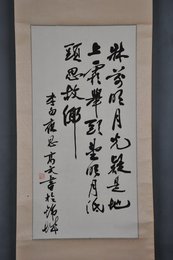 牀前明月光疑是地
上霜舉頭望明月低
頭思故鄉
李白夜思 高文書於